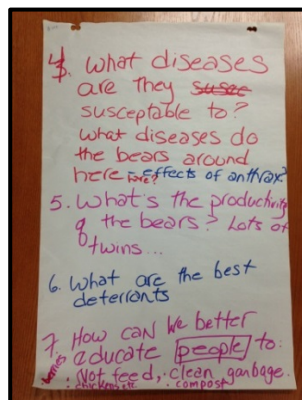 4. What diseases
are they susec
susceptable to?
What diseases do
the bears around
here have? effects of anthrax?
5. What's the productivity
of the bears? Lots of
twins...
6. What are the best
deterrants
7. How can we better
educate people to:
Not feed, clean garbage.
berries chickens etc compost